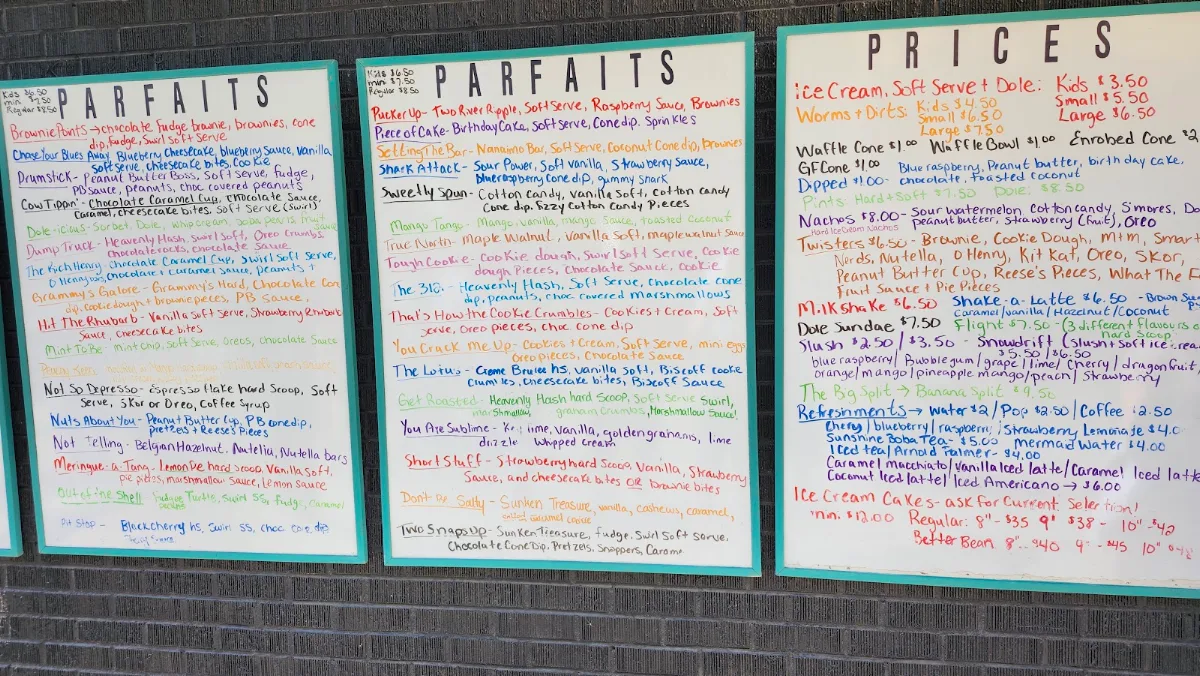 Kids $6.50
min $7.50
Regular $8.50
PARFAITS
Brownie Points → chocolate fudge brownie, brownies, cone
dip, fudge, swirl soft serve
Chase Your Blues Away Blueberry Cheesecake, blueberry sauce, vanilla
soft serve, cheesecake bites, cookie
Drumstick - Peanut Butter Boss, Soft serve, fudge,
PB sauce, peanuts, choc covered peanuts
Cow Tippin' - Chocolate Caramel Cup, chocolate sauce,
caramel, cheesecake bites, Soft Serve (swirl)
Dole-icious - Sorbet, Dole, whip cream, boba pearls, fruit
sauce
Dump Truck - Heavenly Hash, swirl soft, Oreo crumbs
chocolate rocks, chocolate sauce
The Rich Henry Chocolate Caramel Cup, Swirl soft serve,
O Henry bits, chocolate + caramel sauce, peanuts
Grammy's Galore - Grammy's Hard, Chocolate Con
dip, cookie dough + brownie pieces, PB Sauce,
Hit The Rhubarb - Vanilla soft serve, Strawberry Rhubarb
Sauce, cheesecake bites
Mint To Be - mint chip, Soft serve, Oreos, chocolate Sauce
Not So Depresso - Espresso flake hard Scoop, Soft
Serve, Skor or Oreo, Coffee Syrup
Nuts About You - Peanut Butter Cup, PB cone dip,
pretzels + Reese's Pieces
Not Telling - Belgian Hazelnut, Nutella, Nutella bars
Meringue-a-Tang - Lemon Pie hard Scoop, Vanilla Soft,
pie pieces, marshmallow sauce, Lemon sauce
Turtle, swirl SS, fudge, Caramel
Pit Stop - Black cherry hs, Swirl SS, choc cone dip
Kids $6.50
min $7.50
Regular $8.50
PARFAITS
Pucker Up - Two River Ripple, Soft Serve, Raspberry Sauce, Brownies
Piece of Cake - Birthday Cake, Soft serve, Cone dip, Sprinkles
Setting The Bar - Nanaimo Bar, Soft Serve, Coconut Cone dip, brownies
Shark Attack - Sour Power, Soft vanilla, Strawberry Sauce,
blue raspberry cone dip, gummy shark
Sweetly Spun - Cotton Candy, Vanilla Soft, Cotton candy
Cone dip, fizzy Cotton Candy Pieces
Mango Tango - Mango vanilla, mango sauce, toasted coconut
True North - Maple Walnut, vanilla soft, maple walnut sauce
Tough Cookie - Cookie dough, Swirl Soft Serve, Cookie
dough pieces, Chocolate Sauce, Cookie
The 310 - Heavenly Hash, Soft Serve, chocolate cone
dip, peanuts, choc covered marshmallows
That's How the Cookie Crumbles - Cookies + Cream, Soft
serve, Oreo pieces, choc cone dip
You Crack Me Up - Cookies + Cream, Soft Serve, mini eggs
Oreo pieces, Chocolate Sauce
The Lotus - Creme Brulee hs, Vanilla Soft, Biscoff cookie
crumbles, cheesecake bites, Biscoff Sauce
Get Roasted - Heavenly Hash hard Scoop, Soft Serve Swirl,
marshmallow, graham crumbs, Marshmallow Sauce!
You Are Sublime - Key lime, Vanilla, golden grahams, lime
drizzle whipped cream
Short Stuff - Strawberry hard Scoop, Vanilla, Strawberry
Sauce, and cheesecake bites OR brownie bites
Don't Be Salty - Sunken Treasure, vanilla, cashews, caramel,
salted caramel
Two Snaps Up - Sunken Treasure, fudge, swirl Soft serve,
Chocolate Cone Dip, Pretzels, Snappers, Carame
PRICES
Ice Cream, Soft Serve + Dole: Kids $3.50
Small $5.50
Large $6.50
Worms + Dirts: Kids $4.50
Small $6.50
Large $7.50
Waffle Cone $1.00 Waffle Bowl $1.00 Enrobed Cone $2
GF Cone $1.00
Dipped $1.00 - Blue raspberry, Peanut butter, birthday cake,
chocolate, toasted coconut
Pints: Hard + Soft $7.50 Dole: $8.50
Nachos $8.00 - Sour watermelon, Cotton candy, S'mores, Do
Hard Ice Cream Nachos peanut butter, Strawberry (fruit), Oreo
Twisters $6.50 - Brownie, Cookie Dough, M+M, Smar
Nerds, Nutella, O Henry, Kit Kat, Oreo, Skor,
Peanut Butter Cup, Reese's Pieces, What The F
Fruit Sauce + Pie Pieces
Milkshake $6.50 Shake-a-Latte $6.50 - Brown Su
Caramel/Vanilla/Hazelnut/Coconut
Dole Sundae $7.50 Flight $7.50 - (3 different flavours o
hard Scoop
Slush $2.50/$3.50 - Snowdrift (slush + soft ice crea
$5.50/$6.50
blue raspberry/Bubblegum/grape/lime/cherry/dragonfruit,
orange/mango/pineapple mango/peach/strawberry
The Big Split → Banana Split $9.50
Refreshments → Water $2/Pop $2.50/Coffee $2.50
Cherry/blueberry/raspberry/Strawberry Lemonade $4.0
Sunshine Boba Tea - $5.00 Mermaid Water $4.00
Iced tea/Arnold Palmer - $4.00
Caramel macchiato/Vanilla Iced latte/Caramel Iced latte
Coconut Iced latte/Iced Americano → $6.00
Ice Cream Cakes - ask for Current Selection!
Min: $12.00 Regular: 8" - $35 9" $38 - 10" - $42
Better Bean 8" - $40 9" - $45 10" $48